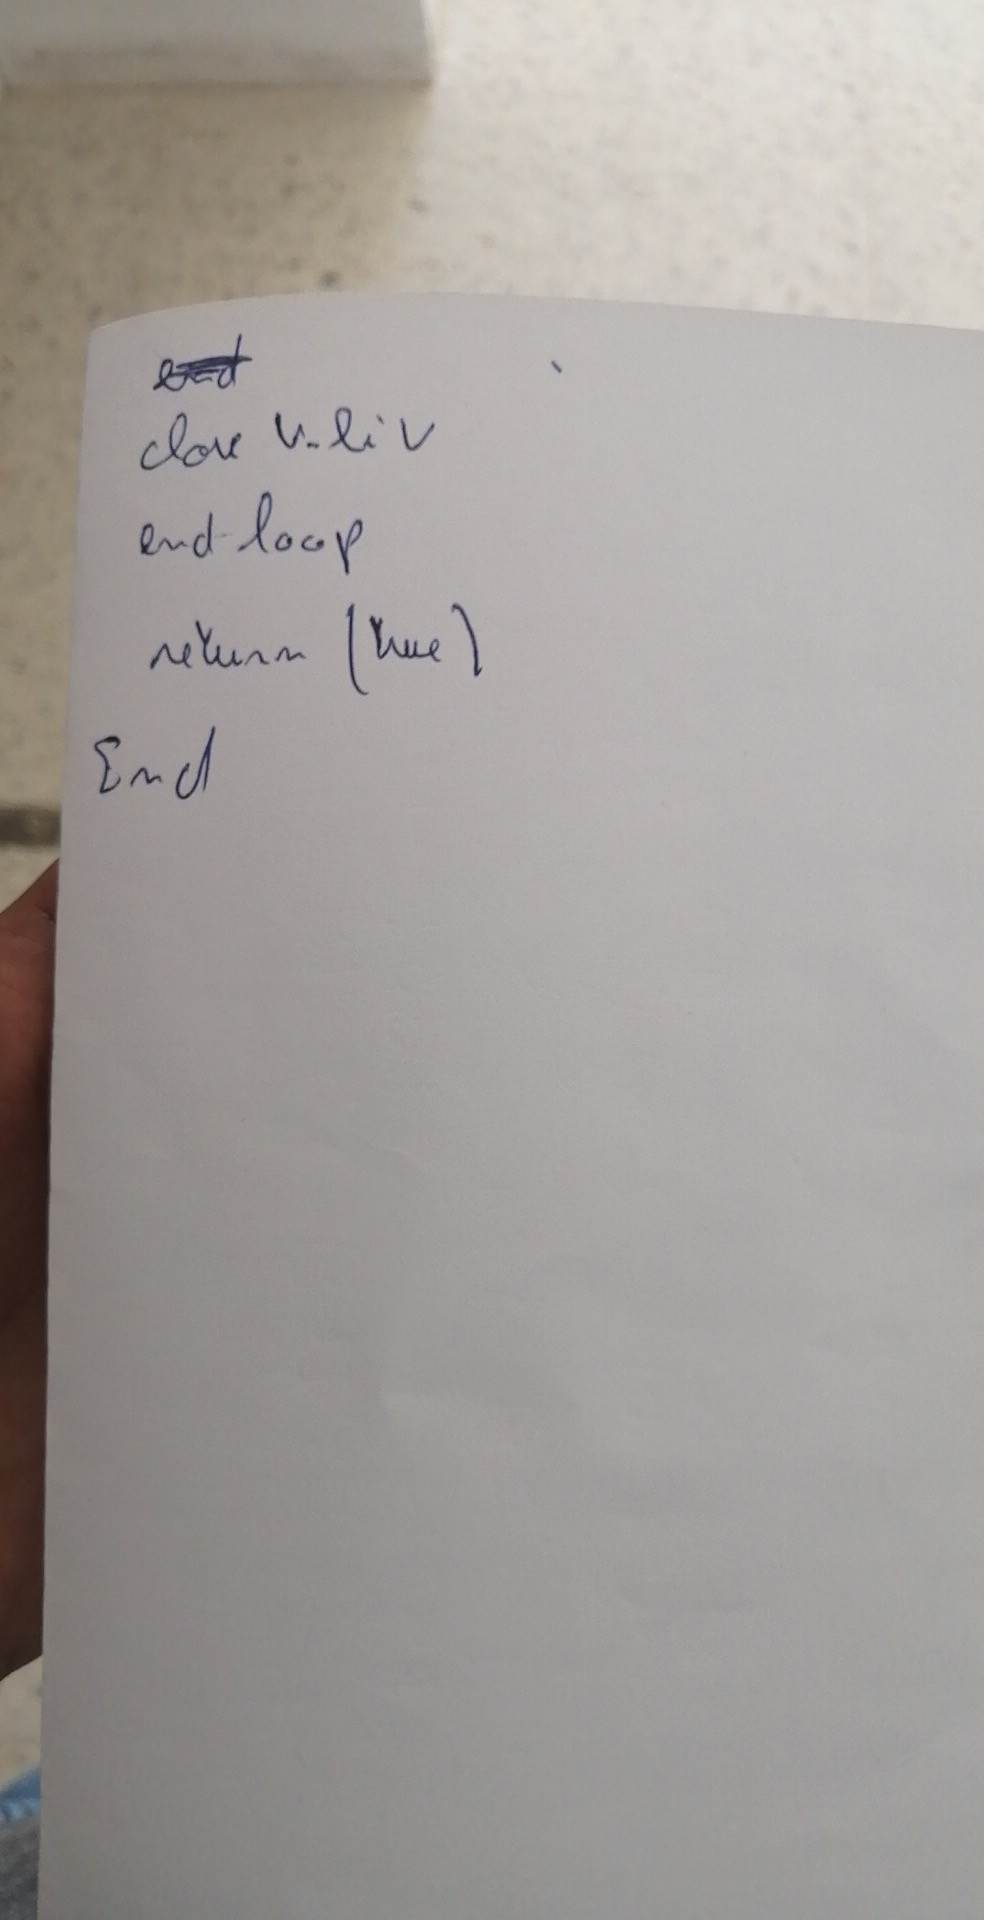 close V_liv
end loop
return (true)
End